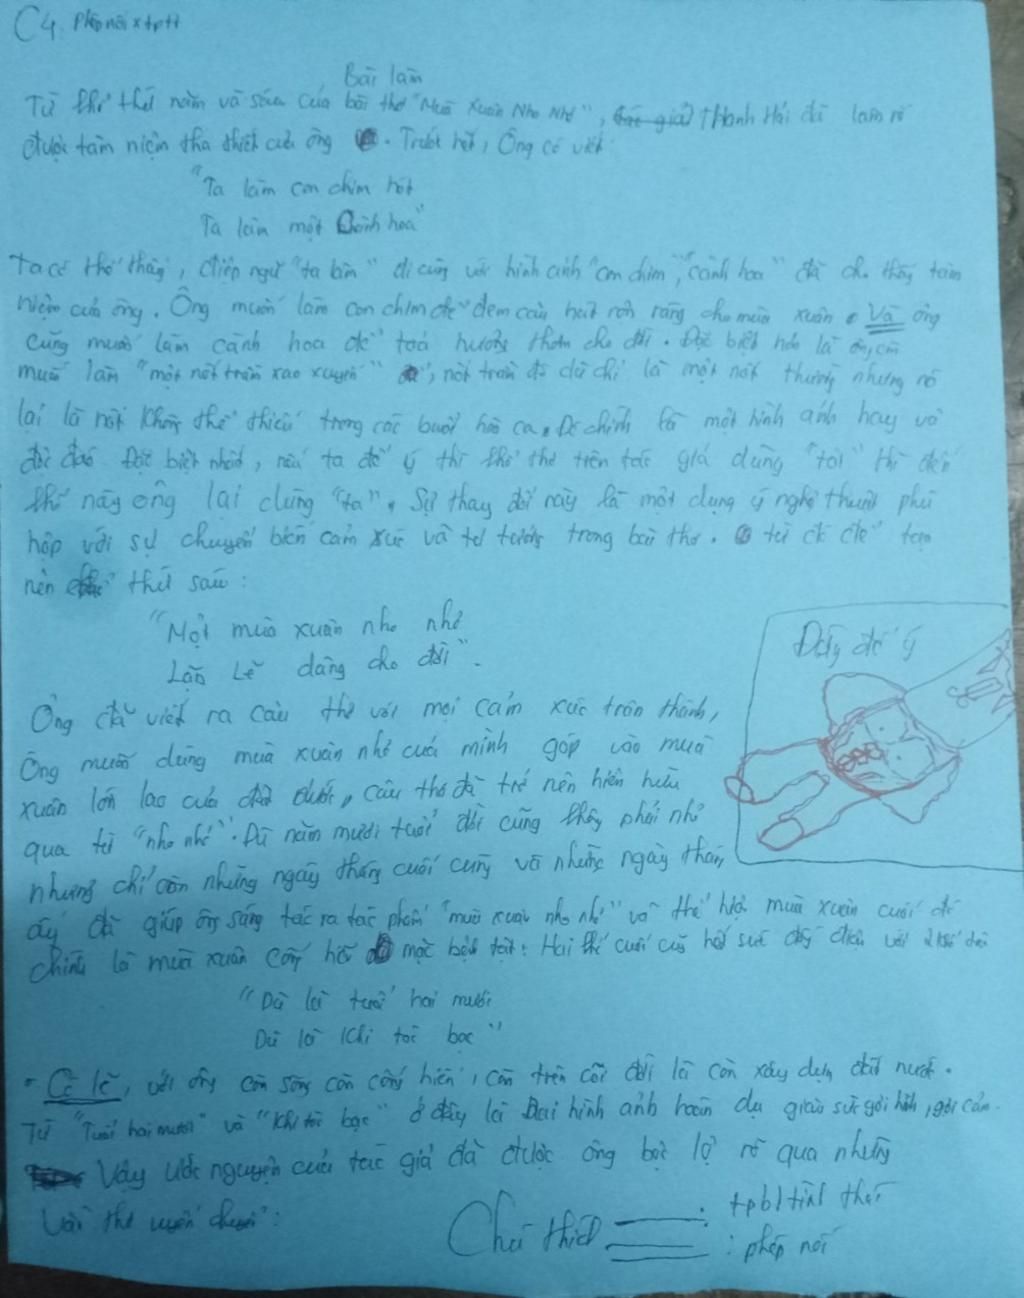 C4. Phép nối x tptt
Bài làm
Từ khổ thứ năm và sáu của bài thơ "Mùa Xuân Nho Nhỏ", Thanh Hải đã làm rõ
được tâm niệm tha thiết của ông. Trước hết, Ông có viết:
"Ta làm con chim hót
Ta làm một cành hoa"
Ta có thể thấy, điệp ngữ "ta làm" đi cùng với hình ảnh "con chim", "cành hoa" đã cho thấy tâm
niệm của ông. Ông muốn làm con chim để đem câu hát rộn ràng cho mùa xuân. Và ông
cũng muốn làm cành hoa để toả hương thơm cho đời. Đặc biệt hơn là ông còn
muốn làm "một nốt trầm xao xuyến", nốt trầm đó dù chỉ là một nốt thường nhưng nó
lại là nốt không thể thiếu trong các buổi hòa ca. Đó chính là một hình ảnh hay và
độc đáo. Đặc biệt nhất, nếu ta để ý thì khổ thơ trên tác giả dùng "tôi" thì đến
khổ này ông lại dùng "ta". Sự thay đổi này là một dụng ý nghệ thuật phù
hợp với sự chuyển biến cảm xúc và tư tưởng trong bài thơ. từ đó để tạo
nên khổ thứ sáu:
"Một mùa xuân nho nhỏ
Lặng Lẽ dâng cho đời".
Ông đã viết ra câu thơ với mọi cảm xúc trân thành,
Ông muốn dùng mùa xuân nhỏ của mình góp vào mùa
xuân lớn lao của đất nước, câu thơ đã trở nên hiện hữu
qua từ "nho nhỏ". Dù năm mươi tuổi đời cũng thấy phải nhỏ
nhưng chỉ còn những ngày tháng cuối cùng và những ngày tháng
ấy đã giúp ông sáng tác ra tác phẩm "mùa xuân nho nhỏ" và thể hiện mùa xuân cuối đó
chính là mùa xuân cống hiến mặc bệnh tật. Hai thơ cuối cùng hết sức đầy điên với
"Dù là tuổi hai mươi
Dù là khi tóc bạc"
Có lẽ, với ông còn sống còn cống hiến, còn trên cõi đời là còn xây dựng đất nước.
Từ "Tuổi hai mươi" và "khi tóc bạc" ở đây là hai hình ảnh hoán dụ giàu sức gợi hình, gợi cảm.
Vậy ước nguyện của tác giả đã được ông bộc lộ rõ qua những
vần thơ uyển chuyển:
Đấy để ý
Chú thích : tpbl tình thái
: phép nối